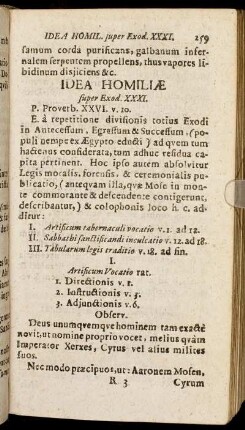 IDEA HOMIL. super Exod. XXXI. 259
samum corda purificans, galbanum infer-
nalem serpentem propellens, thus vapores li-
bidinum disjiciens &c.
IDEA HOMILIÆ
super Exod. XXXI.
P. Proverb. XXVI. v. 10.
E. à repetitione divisionis totius Exodi
in Antecessum, Egressum & Successum, (po-
puli nempe ex Ægypto educti) ad qvem tum
hactenus considerata, tum adhuc residua ca-
pita pertinent. Hoc ipso autem absolvitur
Legis moralis, forensis, & ceremonialis pu-
blicatio, (anteqvam illa, qvæ Mose in mon-
te commorante & descendente contigerunt,
describantur,) & colophonis loco h. c. ad-
ditur:
I. Artificum tabernaculi vocatio v. 1. ad 12.
II. Sabbathi sanctificandi inculcatio v. 12. ad 18.
III. Tabularum legis traditio v. 18. ad fin.
I.
Artificum Vocatio rat.
1. Directionis v. 1.
2. Instructionis v. 3.
3. Adjunctionis v. 6.
Observ.
Deus unumqvemqve hominem tam exactè
novit, ut nomine proprio vocet, melius qvàm
Imperator Xerxes, Cyrus vel alius milites
suos.
Nec modo præcipuos, ut: Aaronem, Mosen,
R 3 Cyrum